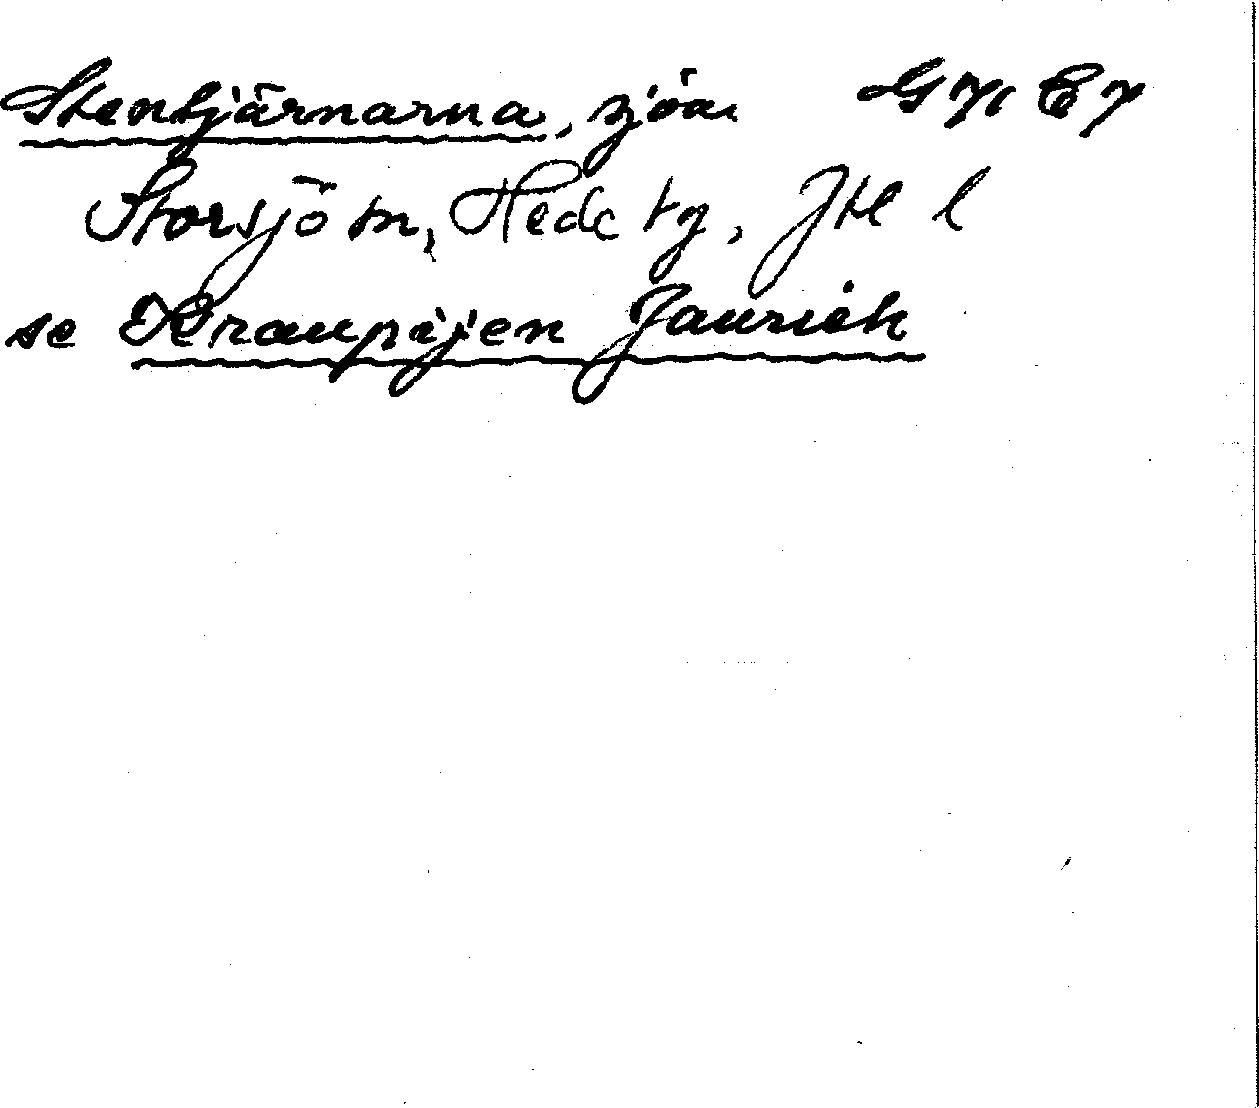 Stentjärnarna, sjöar G 71 E 7
Storsjö sn, Hede tg, Jtl l
se Kraupåjen Jaurieh